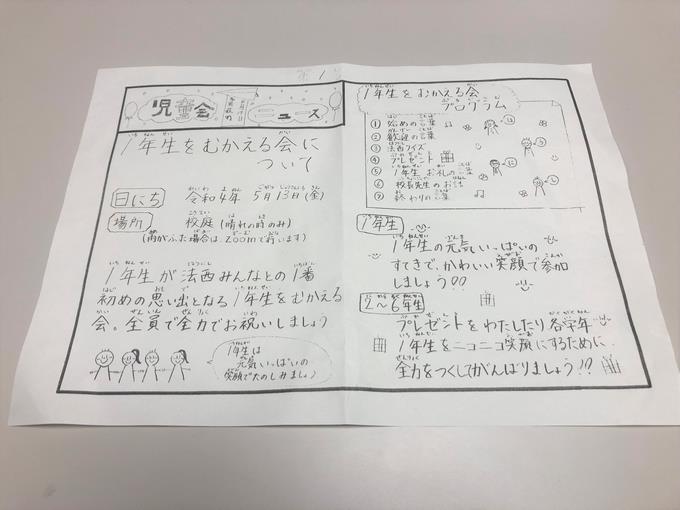 児童会
ニュース
1年生をむかえる会に
ついて
日にち 令和4年 5月13日(金)
場所 校庭(晴れの時のみ)
(雨がふった場合は、Zoomで行います)
1年生が法西みんなとの1番
初めの思い出となる1年生をむかえる
会。全員で全力でお祝いしましょう
1年生は
元気いっぱいの
笑顔でたのしみましょ
1年生をむかえる会
プログラム
① 始めの言葉
② 歓迎の言葉
③ 法西クイズ
④ プレゼント
⑤ 1年生 お礼の言葉
⑥ 校長先生のお話
⑦ 終わりの言葉
1年生
1年生の元気いっぱいの
すてきで、かわいい笑顔で参加
しましょう!!
2〜6年生
プレゼントをわたしたり各学年
1年生をニコニコ笑顔にするために、
全力をつくしてがんばりましょう!!